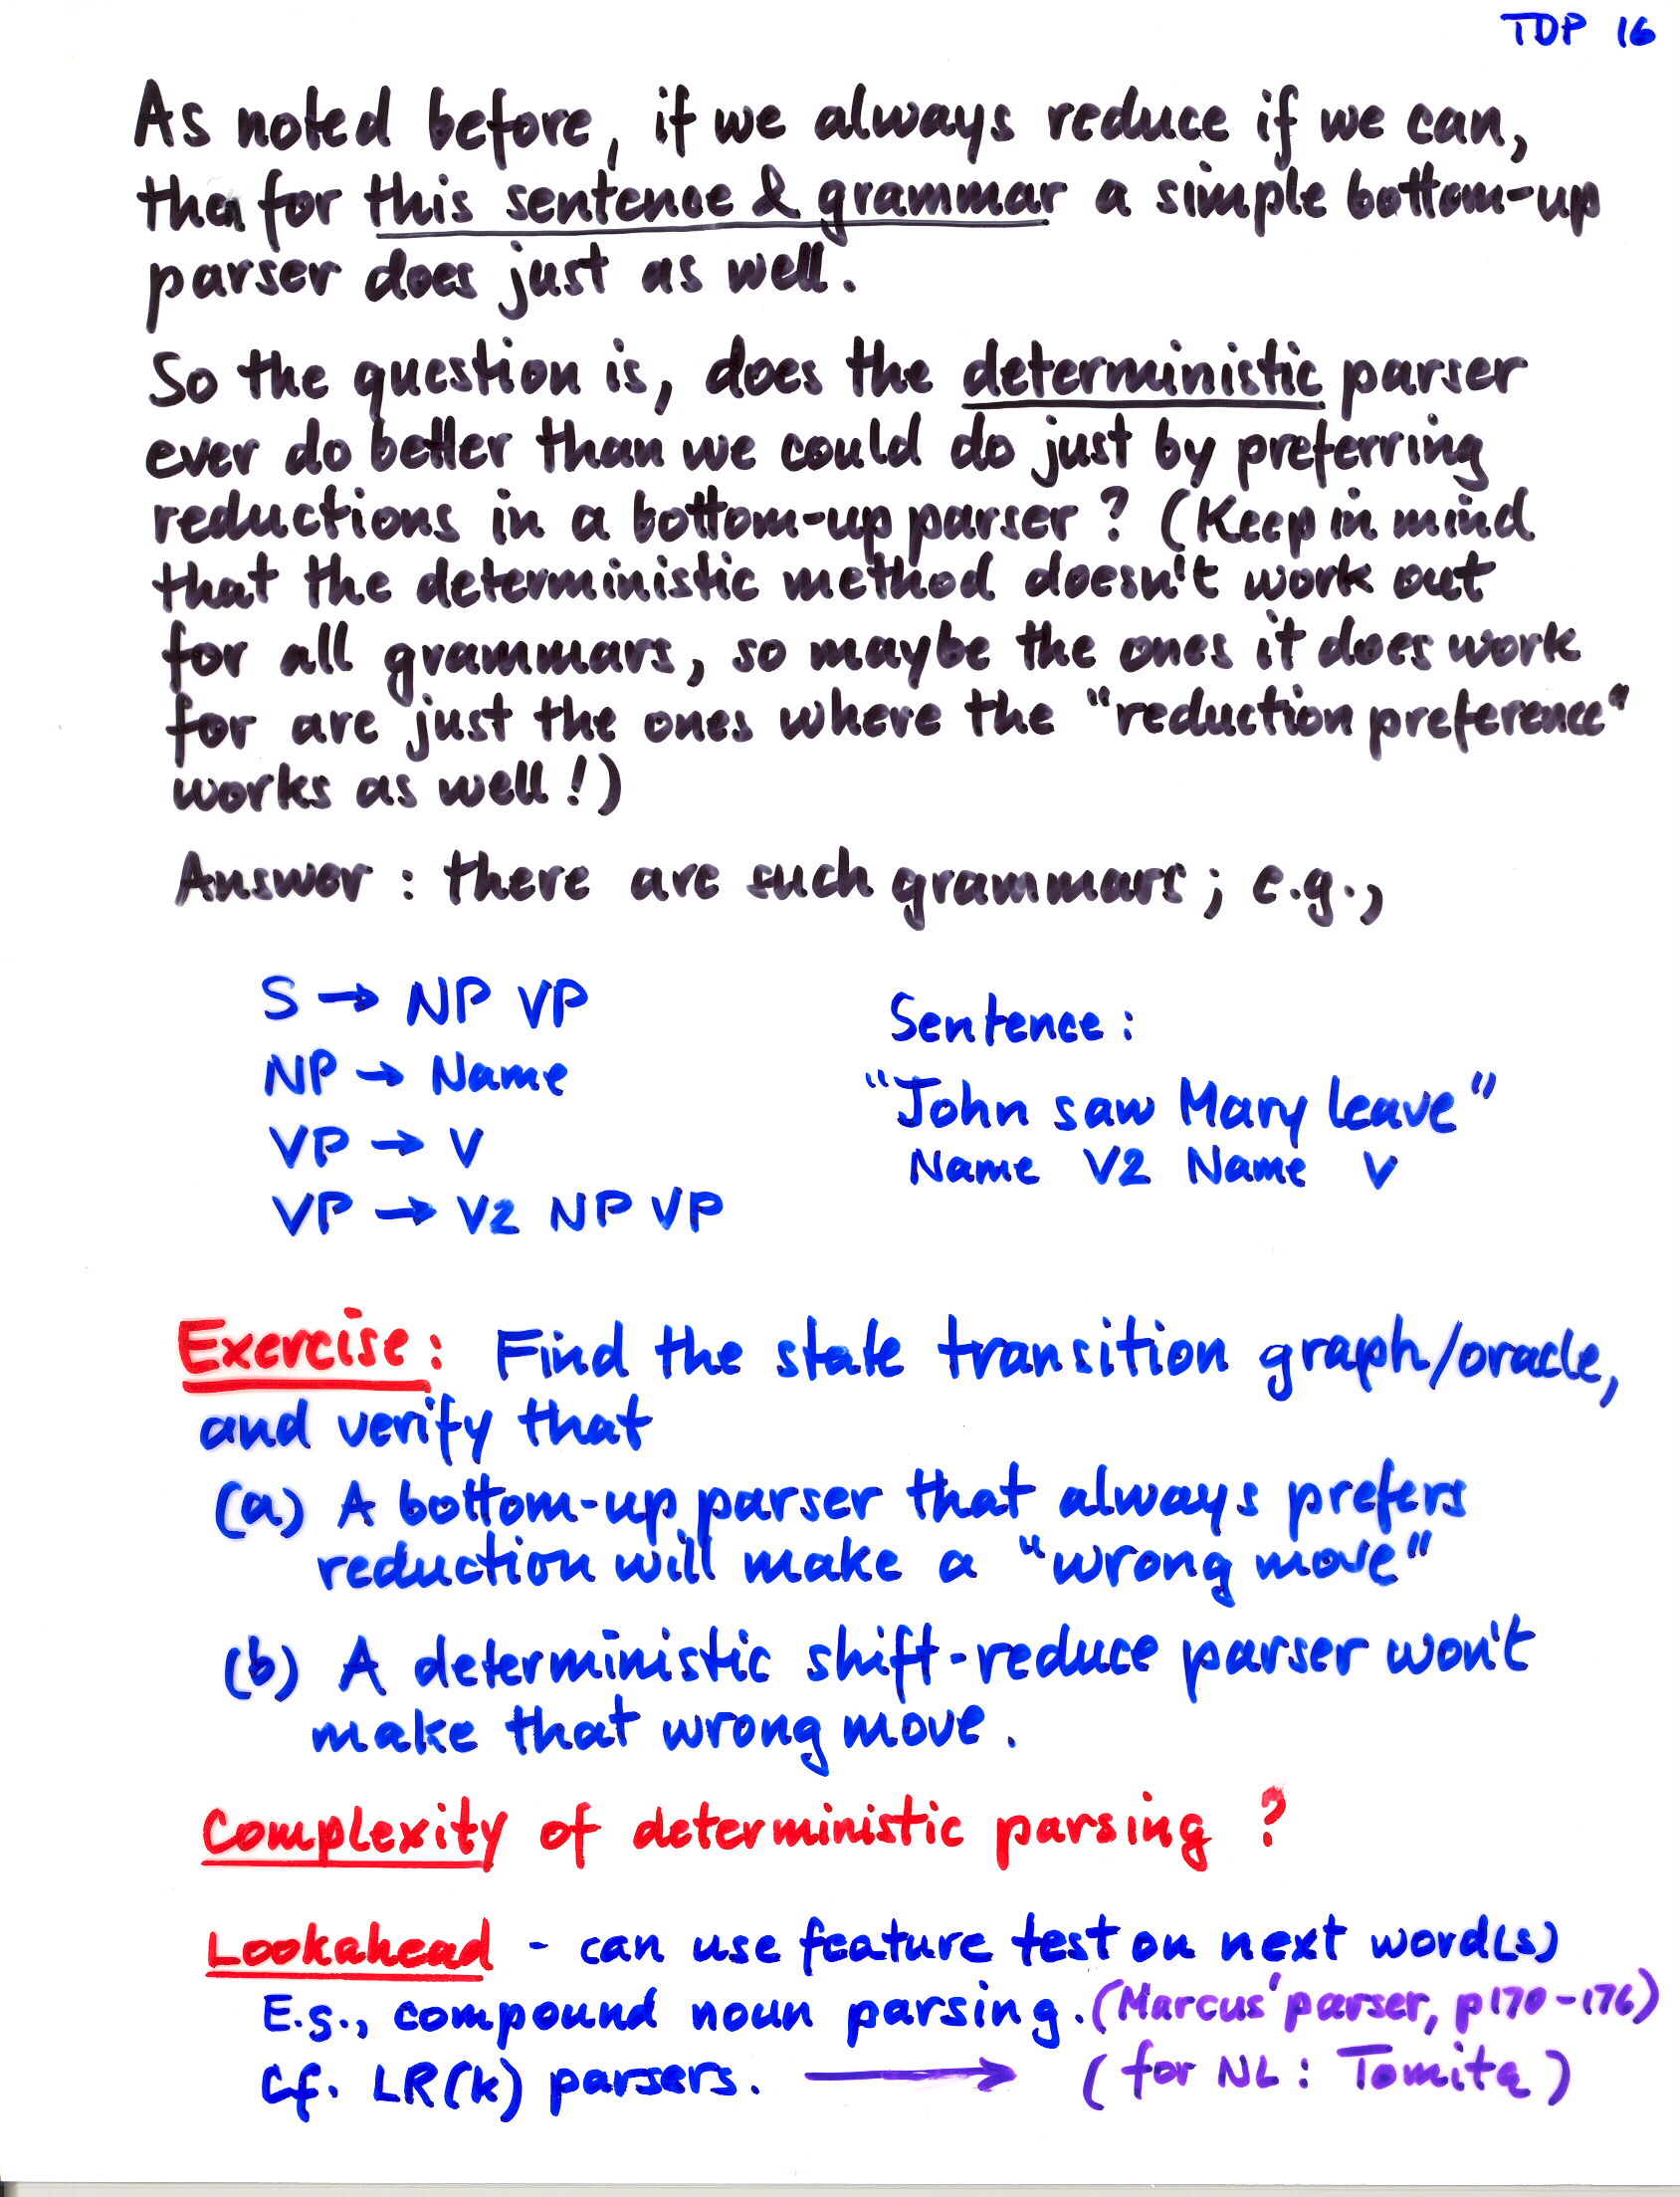 TDP 16
As noted before, if we always reduce if we can,
then for this sentence & grammar a simple bottom-up
parser does just as well.
So the question is, does the deterministic parser
ever do better than we could do just by preferring
reductions in a bottom-up parser? (Keep in mind
that the deterministic method doesn't work out
for all grammars, so maybe the ones it does work
for are just the ones where the "reduction preference"
works as well!)
Answer: there are such grammars; e.g.,
S → NP VP
NP → Name
VP → V
VP → V2 NP VP
Sentence:
"John saw Mary leave"
Name V2 Name V
Exercise: Find the state transition graph/oracle,
and verify that
(a) A bottom-up parser that always prefers
reduction will make a "wrong move"
(b) A deterministic shift-reduce parser won't
make that wrong move.
Complexity of deterministic parsing?
Lookahead - can use feature test on next word(s)
E.g., compound noun parsing. (Marcus' parser, p170-176)
Cf. LR(k) parsers. → (for NL: Tomita)